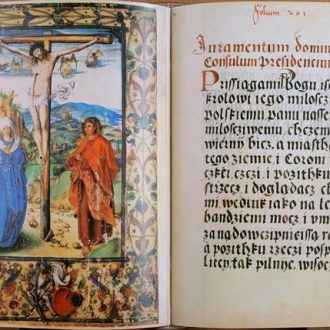 Folium 201
Iuramentum domin
Consulum Presidenciu
Przissięgami Bogu, is
krolowi iego miłosc
polskiemu, panu nasse
miłosciwemu, chczem
wierni bicz, a miasth
tego ziemie, i Coroni
czkei, czczi, i pozithku
strzecz, i doglądacz, c
mi wedluk iako na le
bandziemi mocz, i vm
za nądowczipnieissą r
a pozithku rzeczi posp
liteÿ, tak pilnye, wisoc